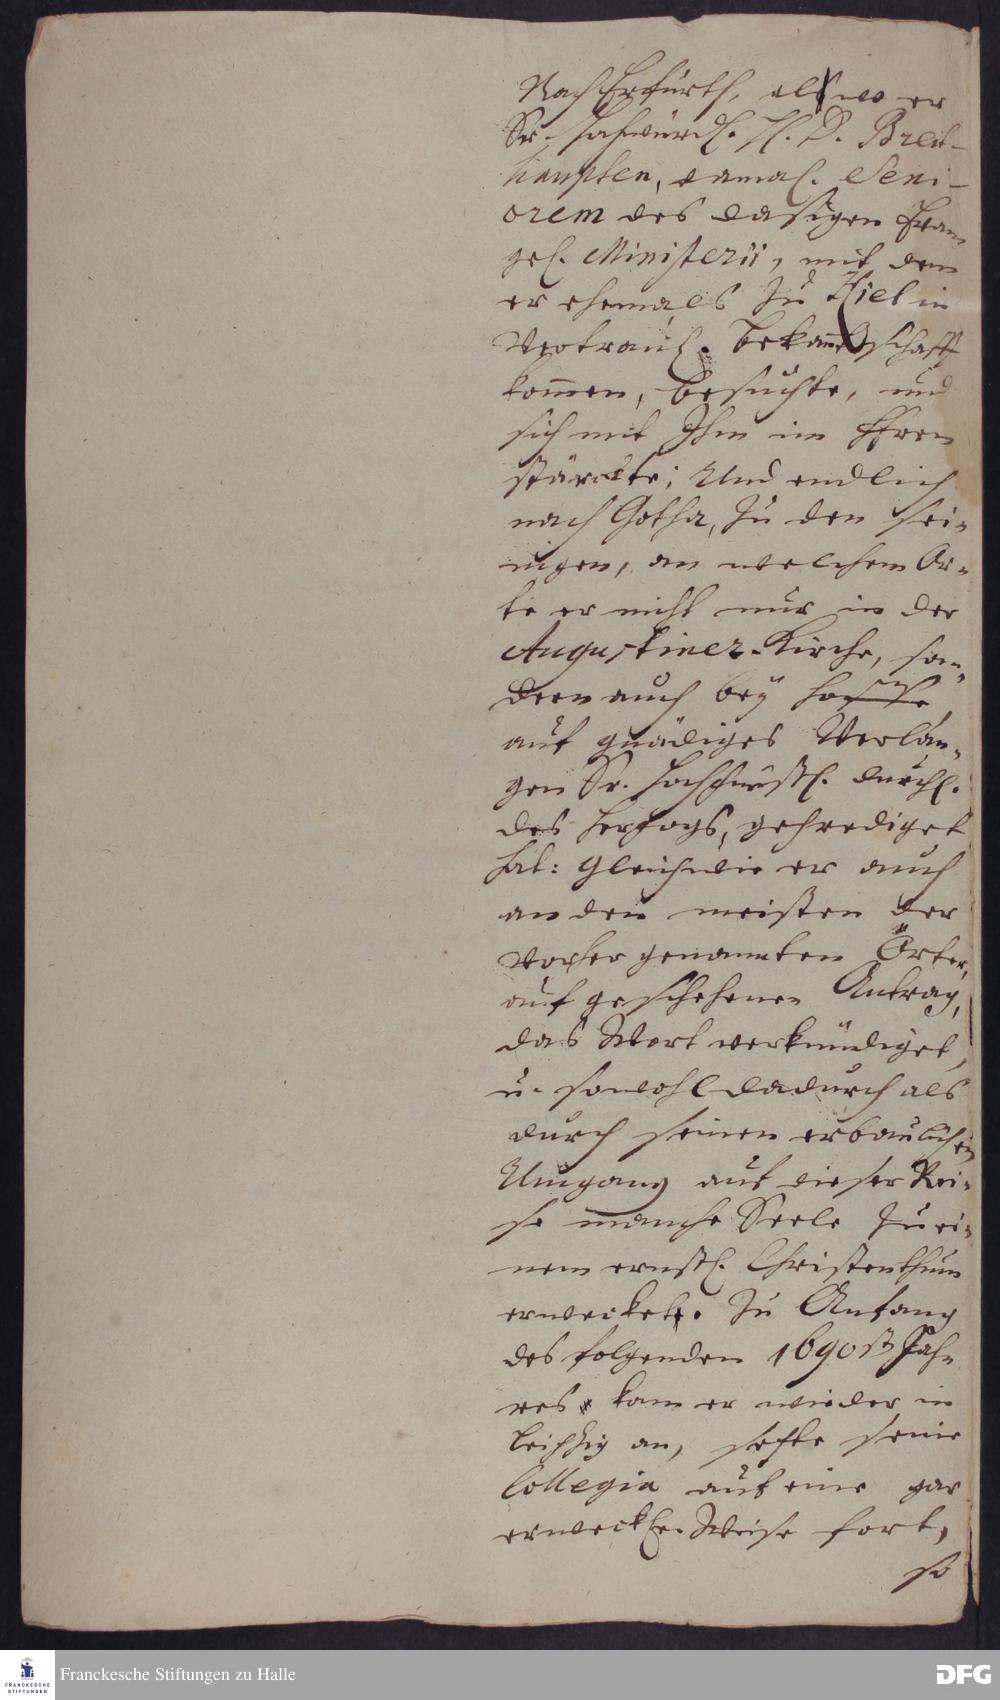 Nach Erfurth, alwo er
Sr. Hochwürdl. H. D. Breit-
haupten, damal. Seni-
orem des dasigen Evan
gel. Ministerii, mit dem
er ehemals zu Kiel in
vertraul. bekantschafft
kommen, besuchte, und
sich mit Ihm im HErrn
stärckte; Und endlich
nach Gotha, zu den sei-
nigen, an welchem Or-
te er nicht nur in der
Augustiner-Kirche, son-
dern auch bey Hoffe
auf gnädiges Verlan-
gen Sr. Hochfürstl. Durchl.
des Herzogs, geprediget
hat: Gleichwie er auch
an den meisten der
vorher genannten Örter,
auf geschehenen Antrag,
das Wort verkündiget,
u. sowohl dadurch als
durch seinen erbaulichen
Umgang auf dieser Rei-
se manche Seele zu ei-
nem ernstl. Christenthum
erwecket. Zu Anfang
des folgenden 1690st Jah
res kam er wieder in
Leipzig an, setzte seine
Collegia auf eine gar
erweckl. Weise fort,
so
Franckesche Stiftungen zu Halle
FRANCKESCHE
STIFTUNGEN
DFG